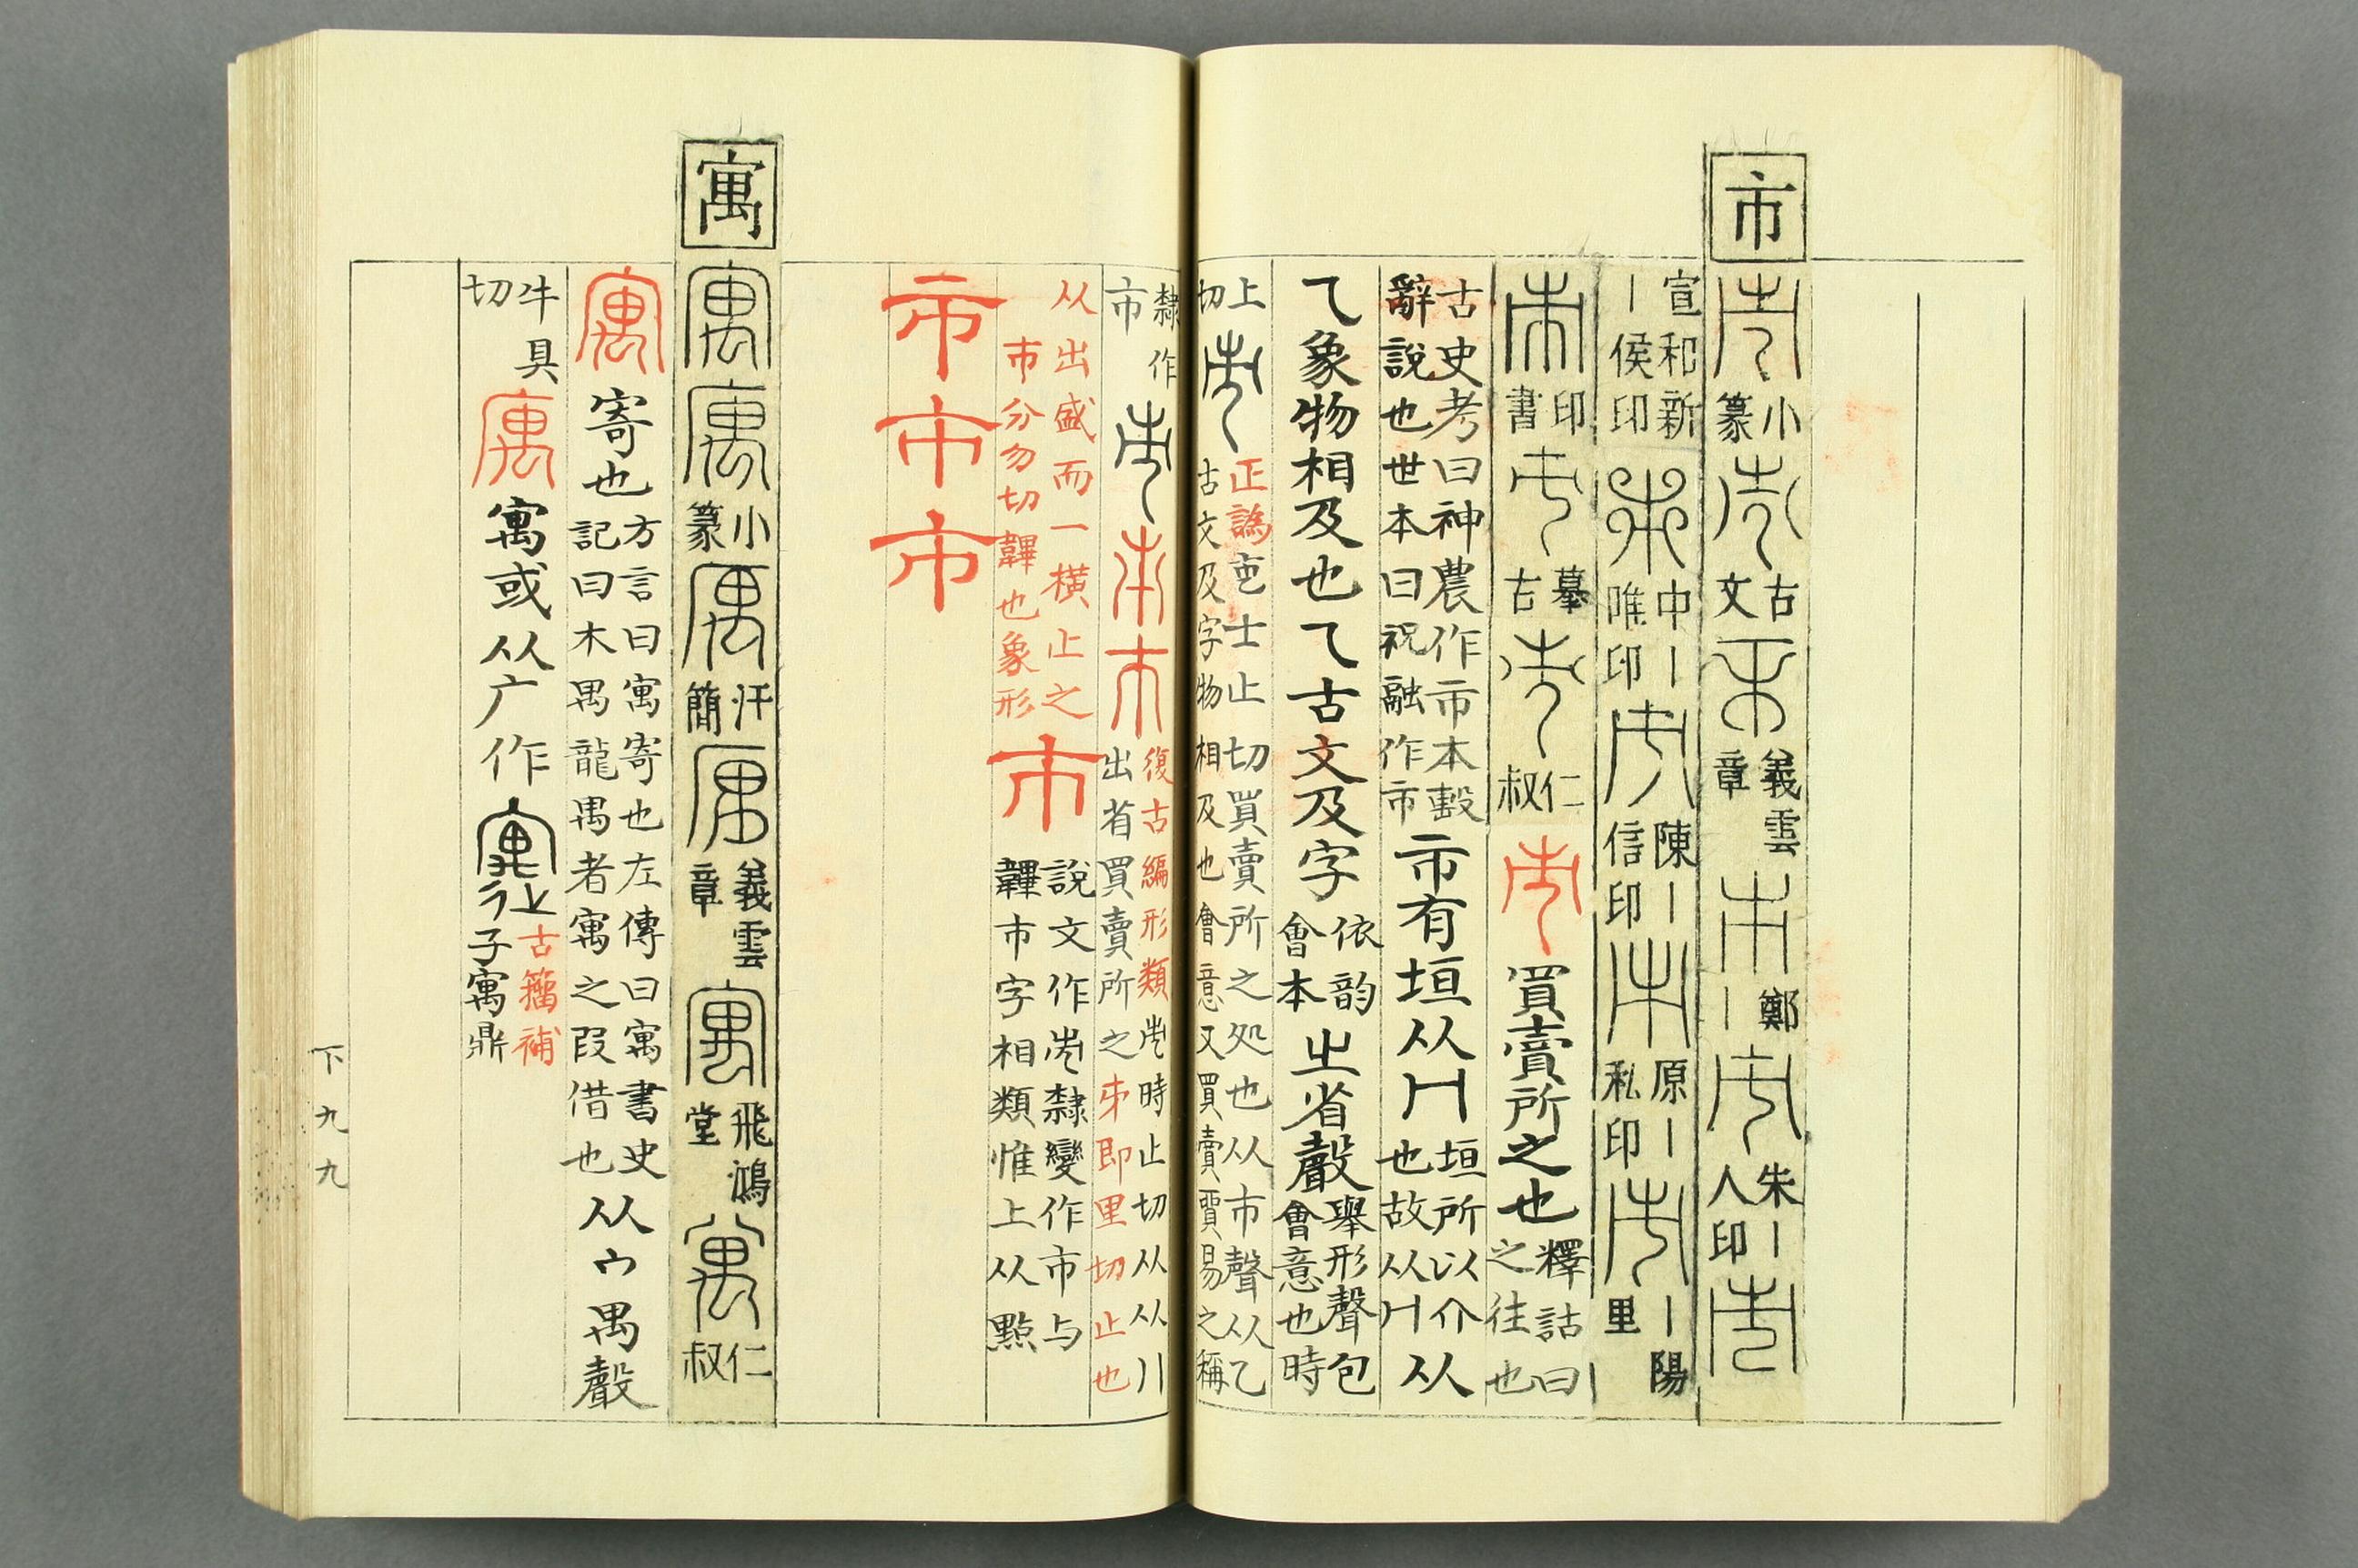 市
小篆 古文 義雲章 鄭丨 朱丨人印
宣和新丨侯印 中丨唯印 陳丨信印 原丨私印 丨陽里
印書 摹古 仁叔 市 買賣所之也 釋詁曰之往也
古史考曰神農作市本毄辭說也世本曰祝融作市 市有垣从冂 垣所以介也故从冂 从
乁象物相及也乁古文及字 依韵會本 㞢省聲 舉形聲包會意也時
上切 正譌 士止切買賣所之処也从市聲从乙古文及字物相及也會意又買賣賈易之稱
隸作市 復古編形類 時止切从从八出省買賣所之 即里切止也
从出盛而一橫止之
市分勿切韠也象形
市 說文作 隸變作市与韠市字相類惟上从點
市市市
寓
小篆 汗簡 義雲章 飛鴻堂 仁叔
寓 寄也 方言曰寓寄也左傳曰寓書史記曰木禺龍禺者寓之叚借也 从宀禺聲
牛具切 寓或从广作 古籀補 子寓鼎
下九九